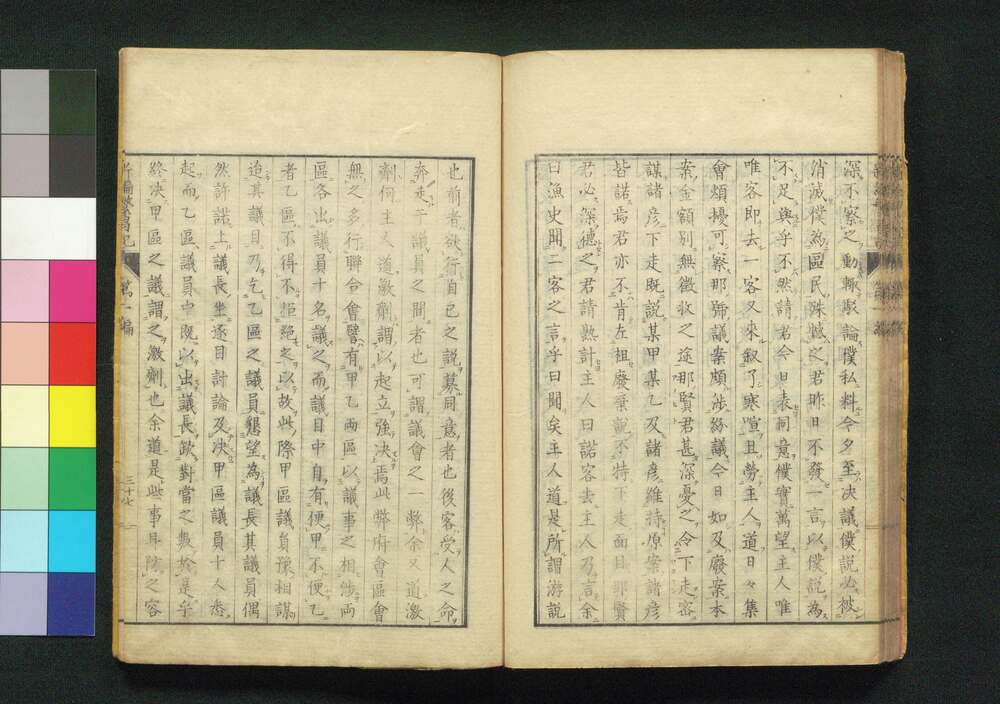 深不察之動輒駁論僕私料今夕至决議僕説必被
消滅僕為區民殊憾之君昨日不發一言以僕説為
不足與乎不不然請君今日表同意僕實萬望主人唯
唯客即去一客又來叙了寒喧且勞主人道日々集
會煩擾可察那號議案頗渉紛議今日如及廢案本
案金額別無徴收之途那賢君甚深憂之令下走密
謀諸彦下走既説某甲某乙及諸彦維持原案諸彦
皆諾焉君亦不肯左袒廢棄説不特下走面目那賢
君必深德之君請熟計主人曰諾客去主人乃言余
曰漁史聞二客之言乎曰聞矣主人道是所謂游説
也前者欲行自己之説募同意者也後客受人之命
奔走于議員之間者也可謂議會之一弊余又道激
劑何主人道激劑謂以起立強决焉此弊府會區會
無之多行聯合會譬有甲乙两區以議事之相渉两
區各出議員十名議之而議目中自有便甲不便乙
者乙區不得不拒絶之以故此際甲區議員豫相謀
追其議目乃乞乙區之議員懇望為議長其議員偶
然許諾上議長坐逐目討論及决甲區議員十人悉
起而乙區議員中既以出議長欽對當之數於是乎
終决甲區之議謂之激劑也余道是些事耳陳之容
新編繁昌記 第一編 三十七